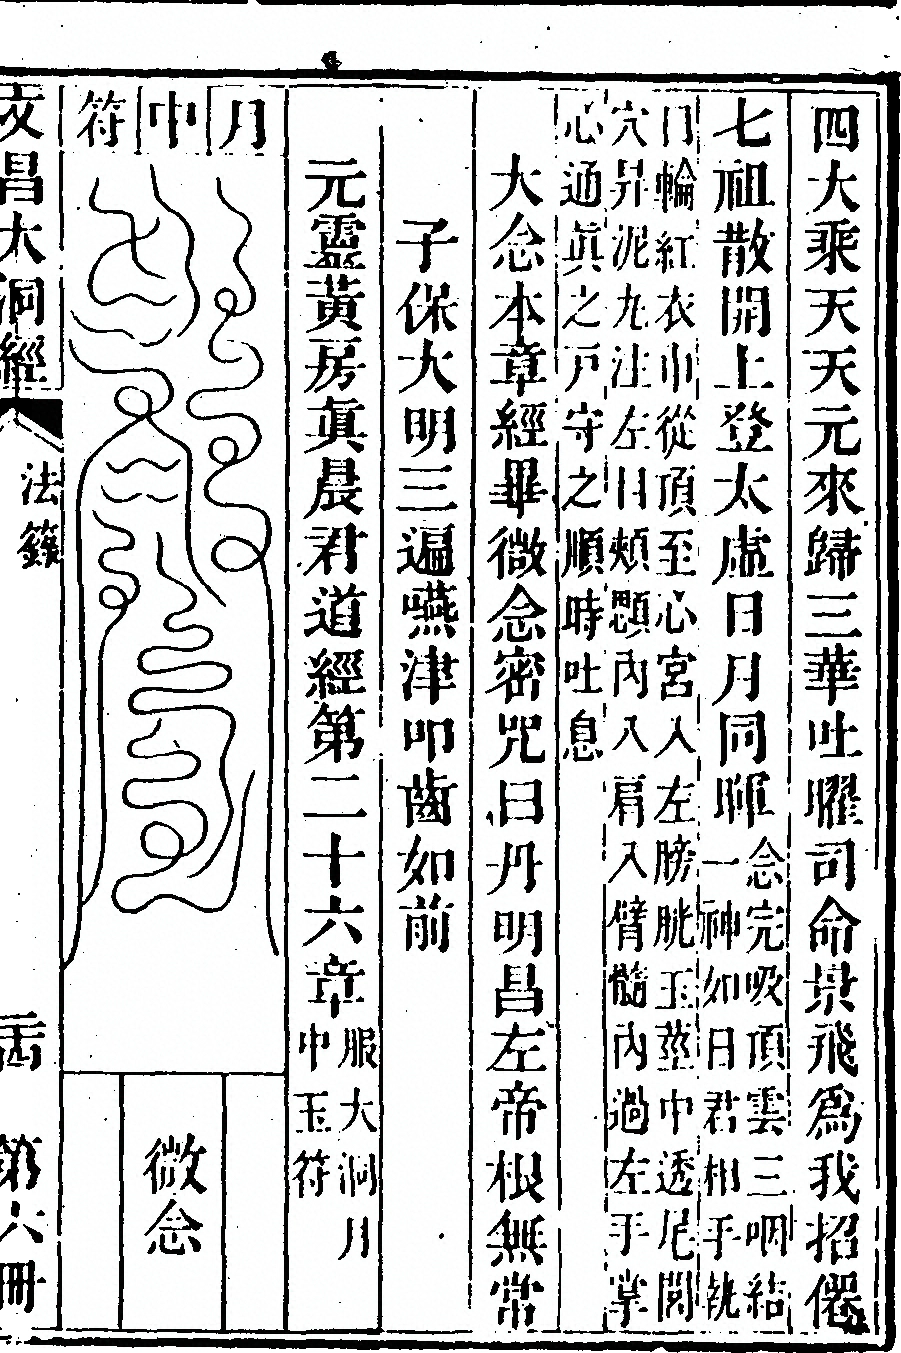 四大乘天天元來歸三華吐曜司命景飛爲我招僊
七祖散開上登太虛日月同暉
念完吸頂雲三咽結
一神如日君相手執
门輪紅衣巾從頂至心宮入左膀胱玉莖中透尾閭
穴昇泥丸注左目頰顋內入肩入臂髓內過左手掌
心通眞之戸守之順時吐息
大念本章經畢微念密咒曰丹明昌左帝根無常
子保大明三遍嚥津叩齒如前
元靈黃房眞晨君道經第二十六章
服大洞月
中玉符
月中符
微念
文昌大洞經
法籙
第六冊